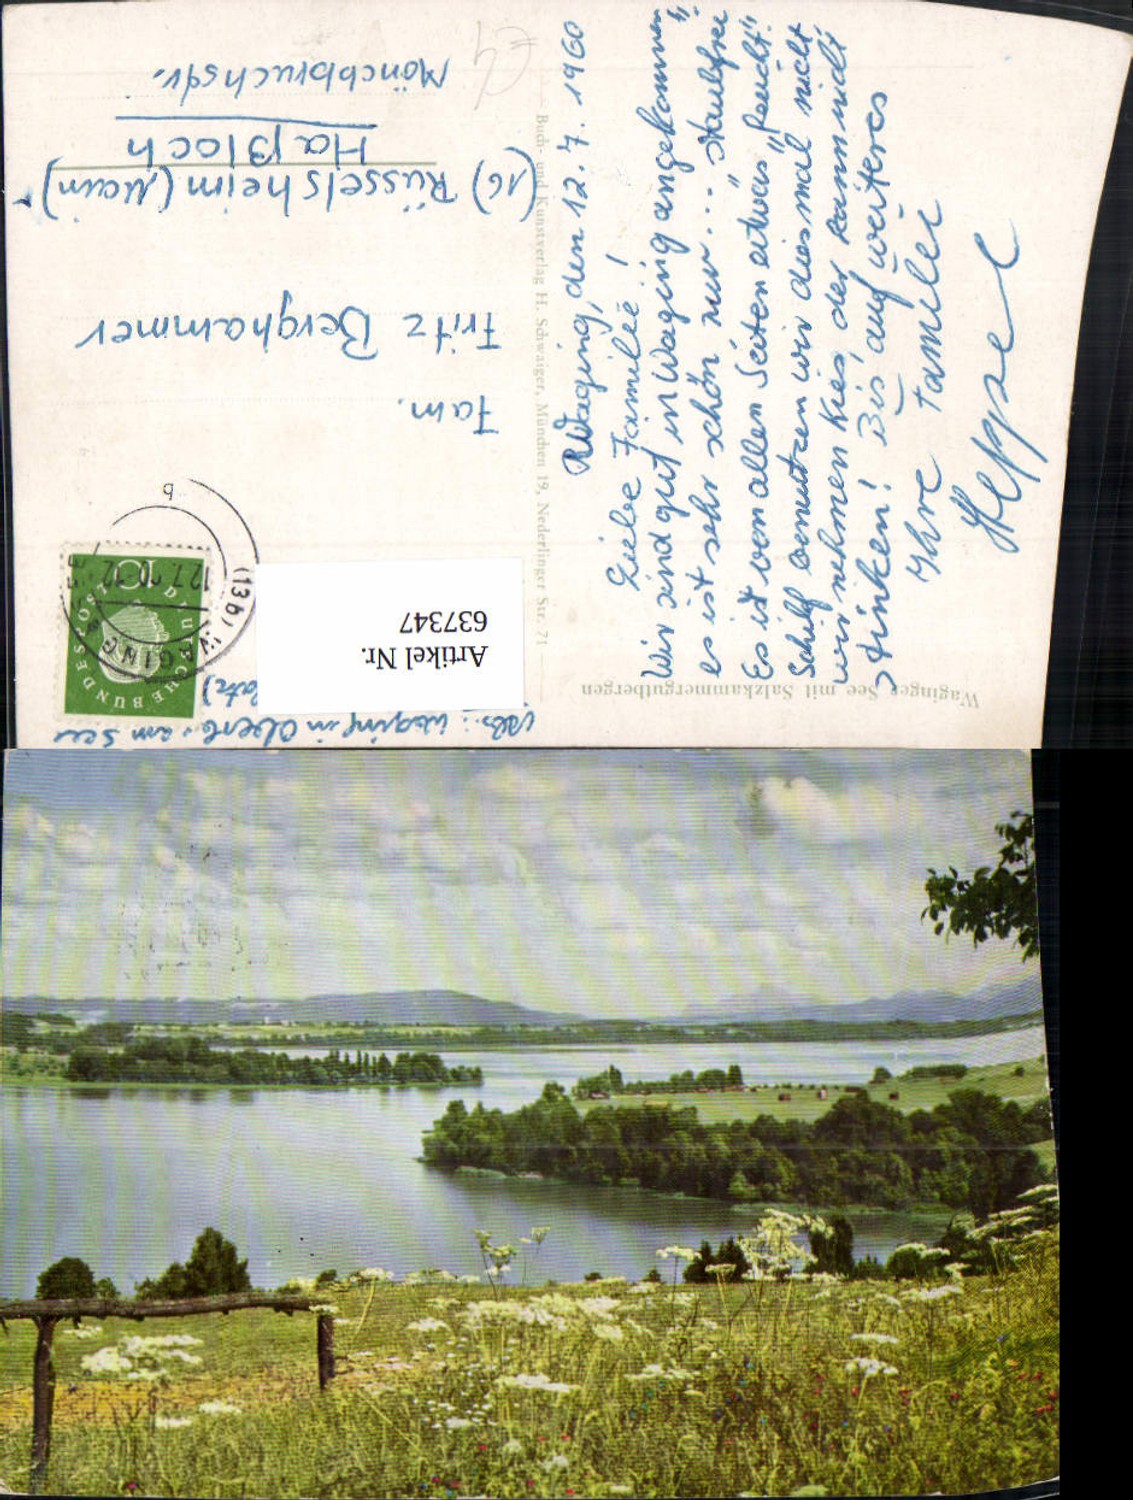 Waginger See mit Salzkammergutbergen
Waging, den 12.7.1960
Liebe Familie!
Wir sind gut in Waging angekommen,
es ist sehr schön nur... "staubfrei"
Es ist von allen Seiten etwas "feucht".
Schiff benutzen wir diesmal nicht
wir nehmen Kies, der kann nicht
stinken! Bis auf weiteres
Ihre Familie
Heppel
Buch- und Kunstverlag H. Schwaiger, München 19, Nederlinger Str. 71
Abs.: Waging in Oberb. am See
Artikel Nr.
637347
DEUTSCHE BUNDESPOST
10
(13b) WAGING
12.7.60.12
b
Fam.
Fritz Berghammer
(16) Rüsselsheim (Main)
Haßloch
Mönchbruchstr.